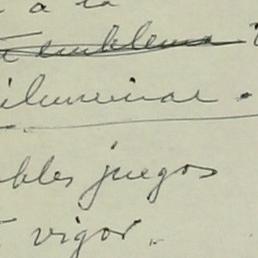 a la
emblema
iluminar.
ables juegos
vigor.